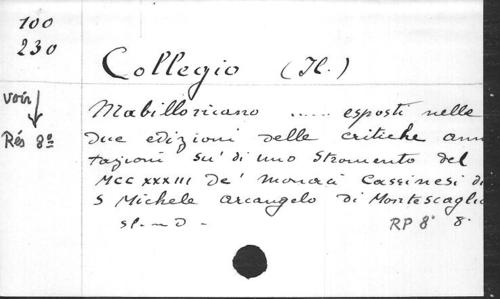 100
230
Collegio (Il.)
voir
Rés 8º
Mabilloricano ...... esposti nelle
due edizioni delle critiche anno
tazioni su' di uno Stromento del
MCC XXXIII de' Monaci Cassinesi di
S Michele Arcangelo di Montescaglio
sl. n D -
RP 8° 8.